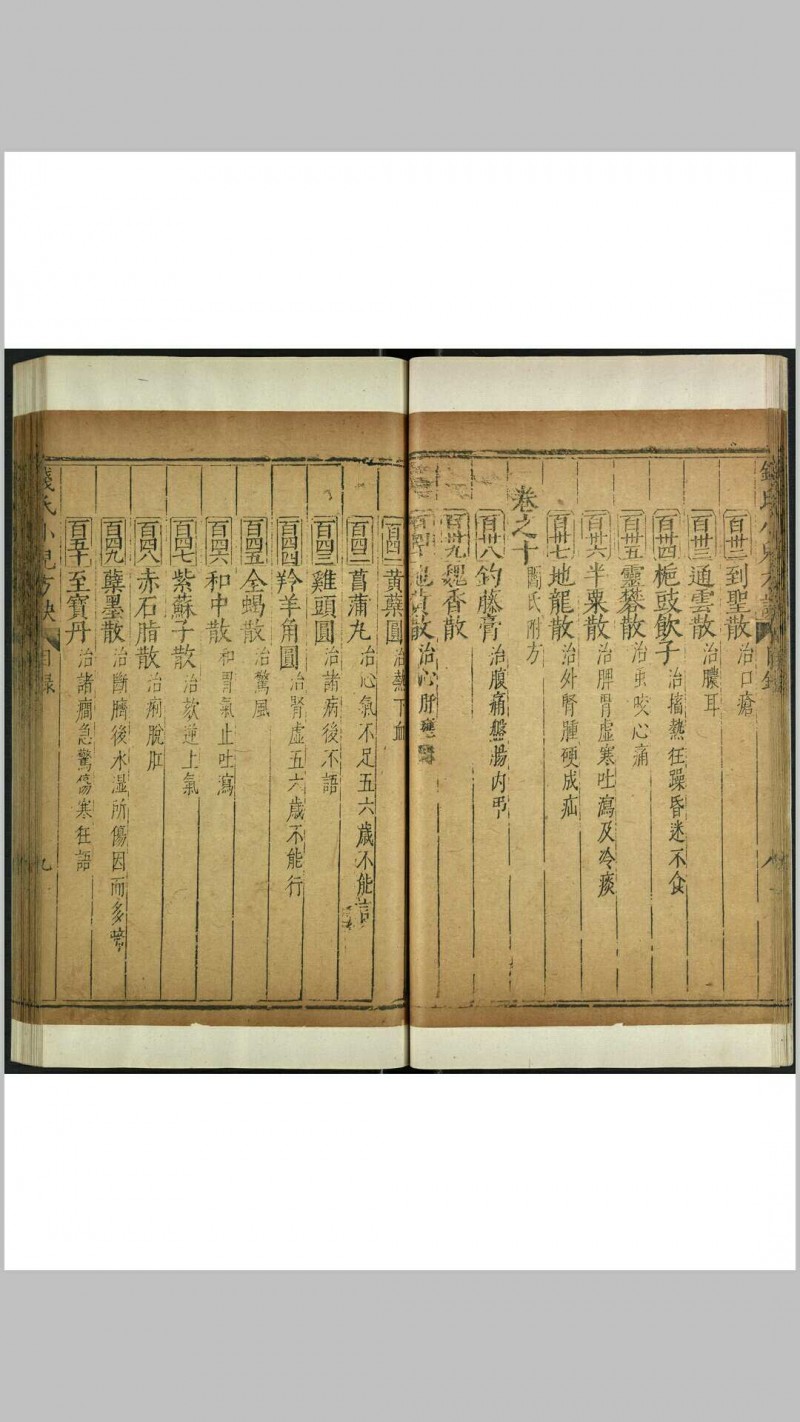 百卅二到聖散 治口瘡
百卅三通雲散 治膿耳
百卅四梔豉飲子 治搐熱狂躁昏迷不食
百卅五靈礬散 治虫咬心痛
百卅六半粟散 治脾胃虛寒吐瀉及冷痰
百卅七地龍散 治外腎腫硬成疝
卷之十 閻氏附方
百卅八釣藤膏 治腹痛盤腸内弔
百卅九魏香散
百四十地黃散 治心肝
百四一黃蘗圓 治熱下血
百四二菖蒲丸 治心氣不足五六歲不能言
百四三雞頭圓 治諸病後不語
百四四羚羊角圓 治腎虛五六歲不能行
百四五全蝎散 治驚風
百四六和中散 和胃氣止吐瀉
百四七紫蘇子散 治欬逆上氣
百四八赤石脂散 治痢脫肛
百四九蘗墨散 治斷臍後水湿所傷因而多啼
百五十至寶丹 治諸癇急驚傷寒狂語
錢氏小兒方訣 目錄 九